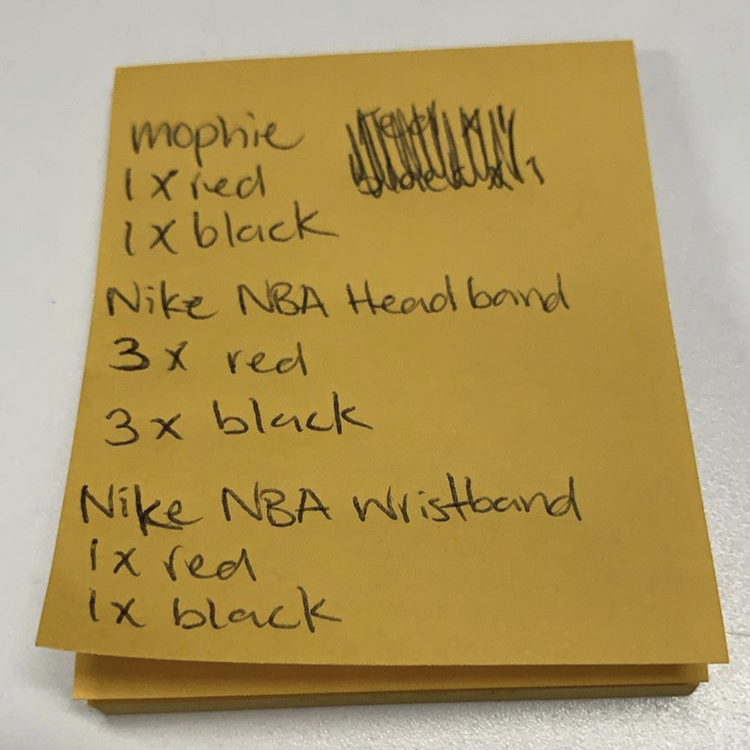 mophie
1 x red
1 x black
Nike NBA Headband
3 x red
3 x black
Nike NBA Wristband
1x red
1x black